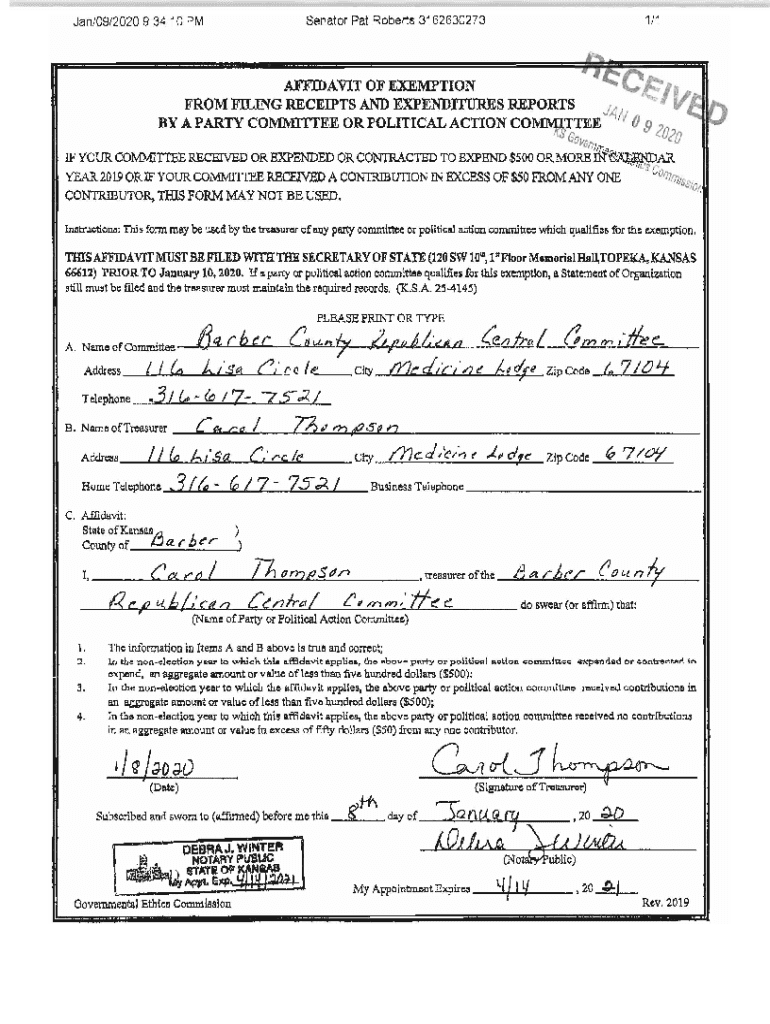 Jan/09/2020 9 34 10 PM Senator Pat Roberts 3162630273 1/1
RECEIVED
JAN 09 2020
KS Governmental Ethics Commission
AFFIDAVIT OF EXEMPTION
FROM FILING RECEIPTS AND EXPENDITURES REPORTS
BY A PARTY COMMITTEE OR POLITICAL ACTION COMMITTEE
IF YOUR COMMITTEE RECEIVED OR EXPENDED OR CONTRACTED TO EXPEND $500 OR MORE IN CALENDAR
YEAR 2019 OR IF YOUR COMMITTEE RECEIVED A CONTRIBUTION IN EXCESS OF $50 FROM ANY ONE
CONTRIBUTOR, THIS FORM MAY NOT BE USED.
Instructions: This form may be used by the treasurer of any party committee or political action committee which qualifies for the exemption.
THIS AFFIDAVIT MUST BE FILED WITH THE SECRETARY OF STATE (120 SW 10th, 1st Floor Memorial Hall, TOPEKA, KANSAS
66612) PRIOR TO January 10, 2020. If a party or political action committee qualifies for this exemption, a Statement of Organization
still must be filed and the treasurer must maintain the required records. (K.S.A. 25-4145)
PLEASE PRINT OR TYPE
A. Name of Committee Barber County Republican Central Committee
Address 116 Lisa Circle City Medicine Lodge Zip Code 67104
Telephone 316-617-7521
B. Name of Treasurer Carol Thompson
Address 116 Lisa Circle City Medicine Lodge Zip Code 67104
Home Telephone 316-617-7521 Business Telephone
C. Affidavit:
State of Kansas )
County of Barber )
I, Carol Thompson, treasurer of the Barber County
Republican Central Committee do swear (or affirm) that:
(Name of Party or Political Action Committee)
1. The information in Items A and B above is true and correct;
2. In the non-election year to which this affidavit applies, the above party or political action committee expended or contracted to
expend, an aggregate amount or value of less than five hundred dollars ($500);
3. In the non-election year to which the affidavit applies, the above party or political action committee received contributions in
an aggregate amount or value of less than five hundred dollars ($500);
4. In the non-election year to which this affidavit applies, the above party or political action committee received no contributions
in an aggregate amount or value in excess of fifty dollars ($50) from any one contributor.
1/8/2020 Carol Thompson
(Date) (Signature of Treasurer)
Subscribed and sworn to (affirmed) before me this 8th day of January, 20 20
DEBRA J. WINTER
NOTARY PUBLIC
STATE OF KANSAS
My Appt. Exp. 4/14/2021
Debra J Winter
(Notary Public)
My Appointment Expires 4/14, 20 21
Governmental Ethics Commission Rev. 2019